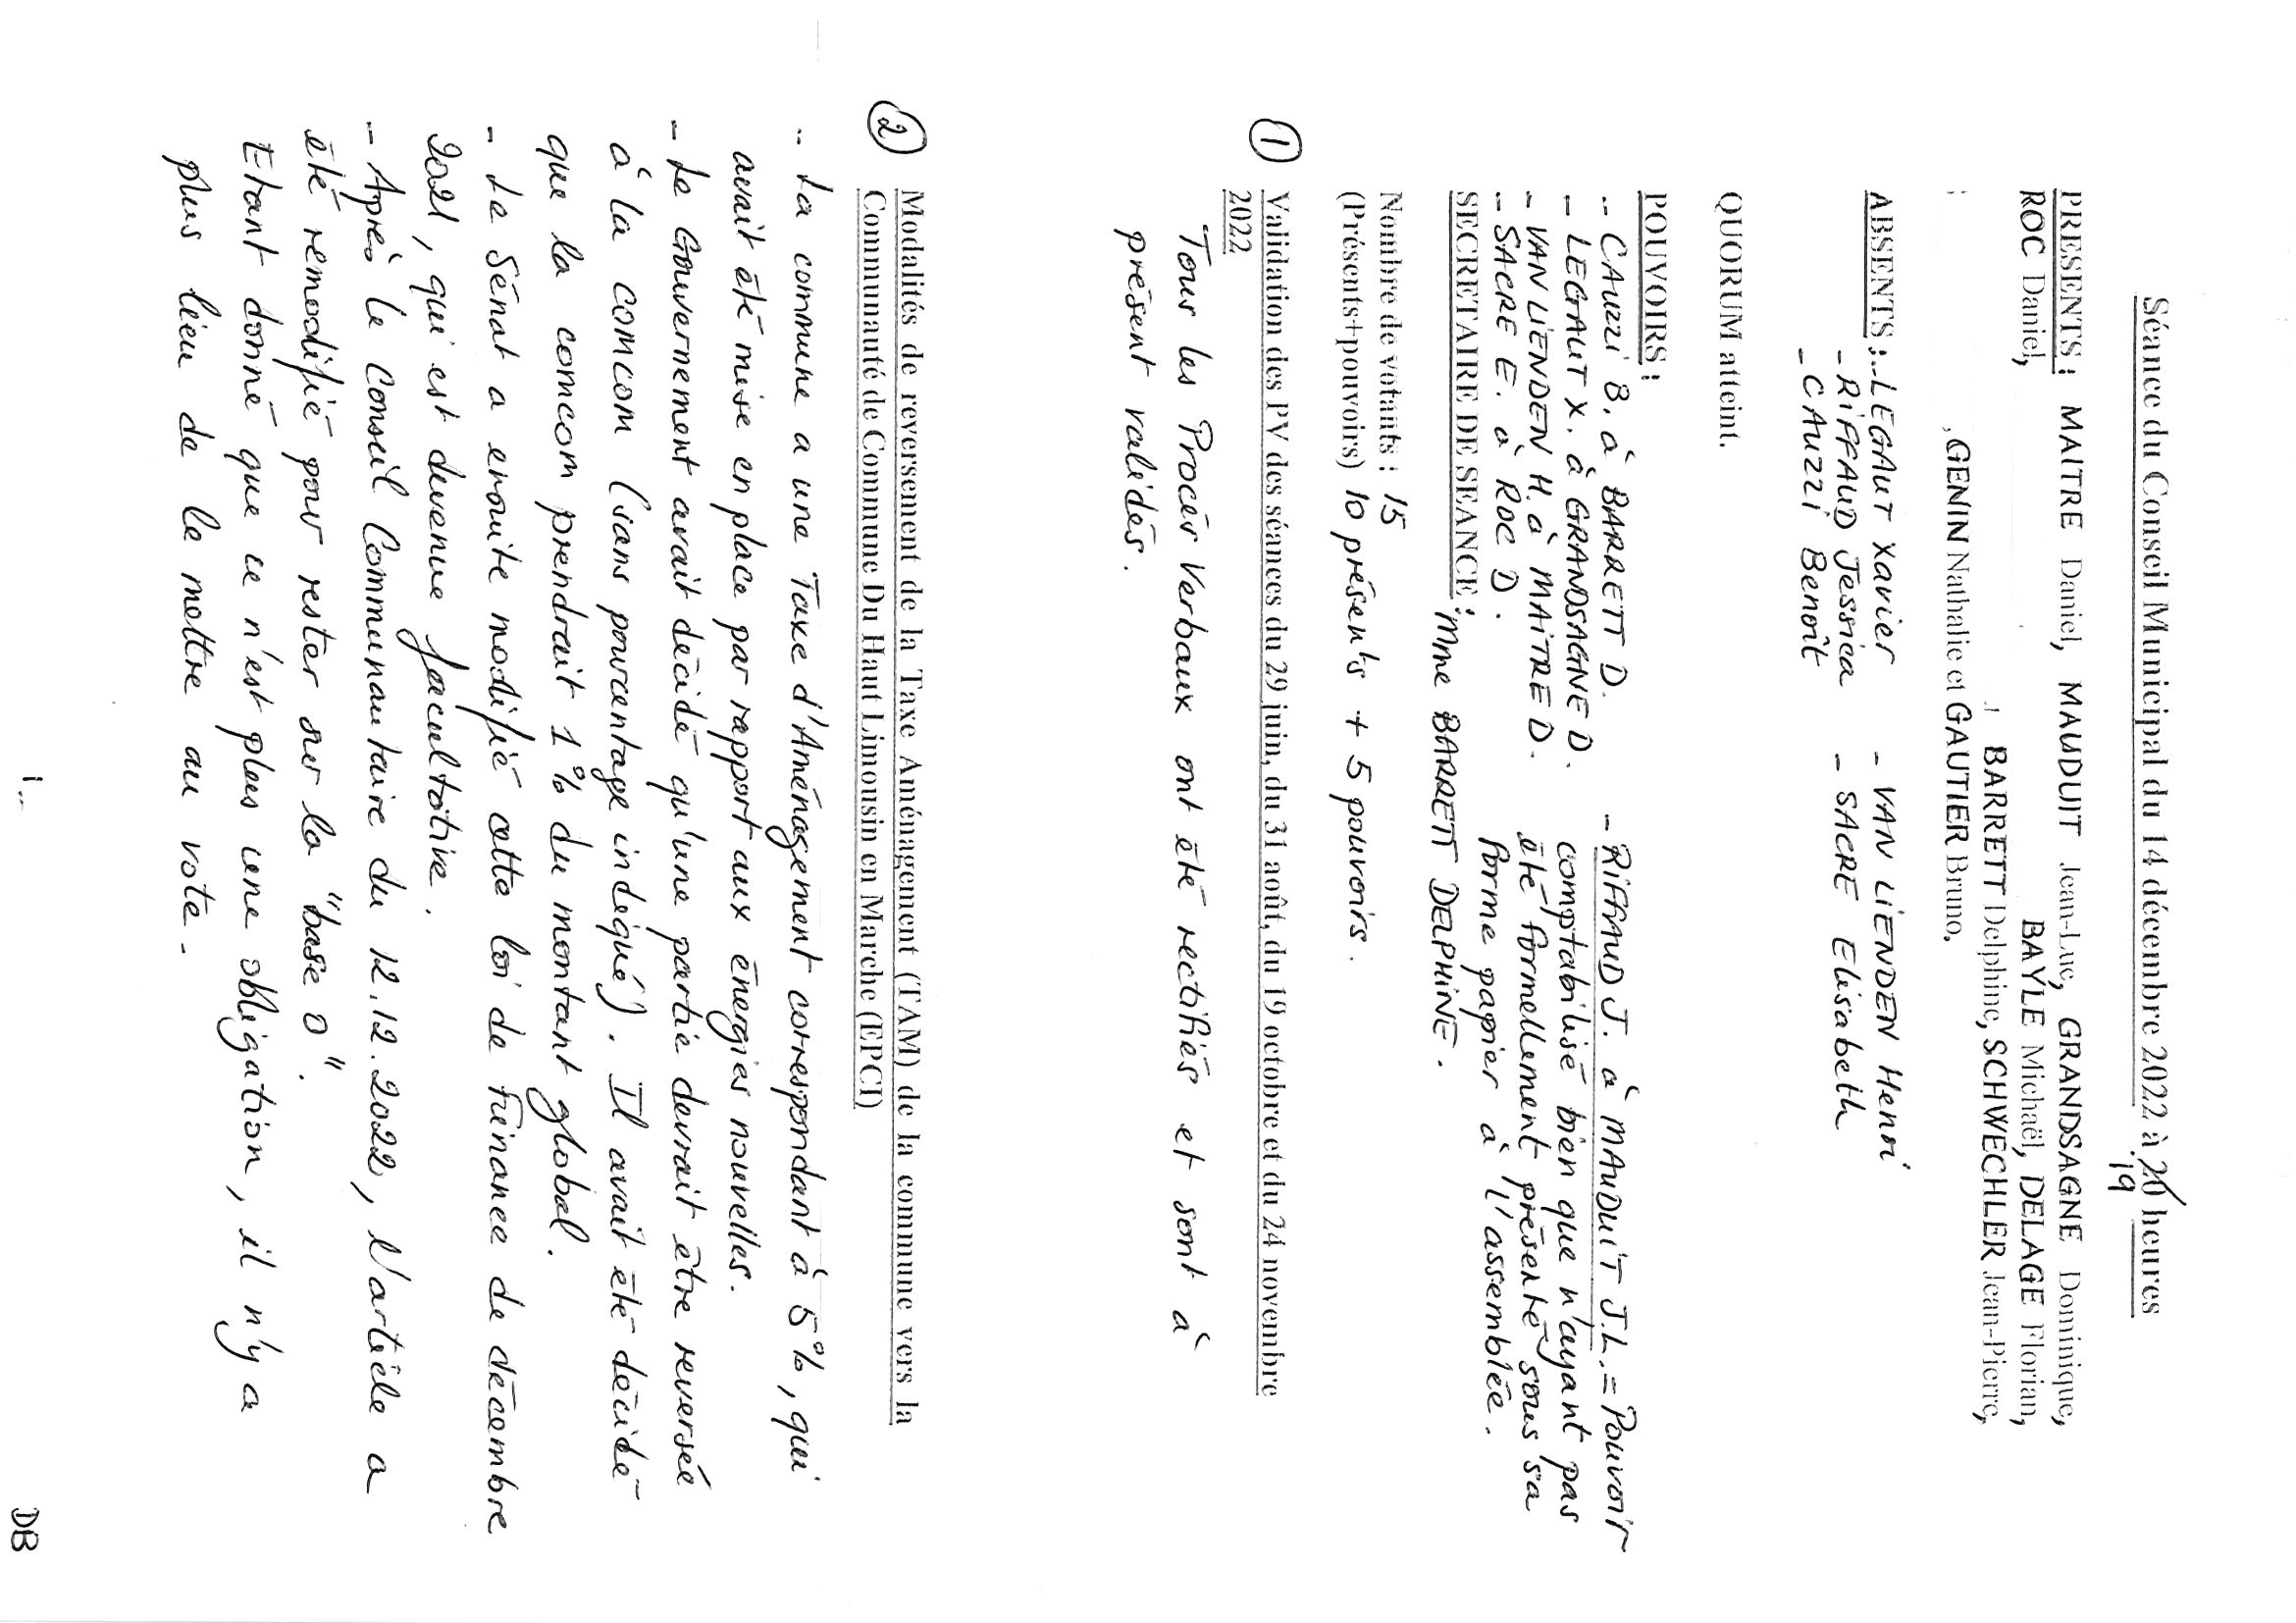 Séance du Conseil Municipal du 14 décembre 2022 à 20 heures
19
PRESENTS : MAITRE Daniel, MAUDUIT Jean-Luc, GRANDSAGNE Dominique,
ROC Daniel, BAYLE Michaël, DELAGE Florian,
BARRETT Delphine, SCHWECHLER Jean-Pierre,
GENIN Nathalie et GAUTIER Bruno,
ABSENTS : - LEGAUT Xavier - VAN LIENDEN Henri
- RIFFAUD Jessica - SACRE Elisabeth
- CAUZZI Benoît
QUORUM atteint.
POUVOIRS :
- CAUZZI B. à BARRETT D.
- LEGAUT X. à GRANDSAGNE D.
- VAN LIENDEN H. à MAITRE D.
- SACRE E. à ROC D.
- RIFFAUD J. à MAUDUIT J.L. = Pouvoir
comptabilisé bien que n'ayant pas
été formellement présenté sous sa
forme papier à l'assemblée.
SECRETAIRE DE SEANCE : Mme BARRETT DELPHINE.
Nombre de votants : 15
(Présents+pouvoirs) 10 présents + 5 pouvoirs.
1 Validation des PV des séances du 29 juin, du 31 août, du 19 octobre et du 24 novembre
2022
Tous les Procès Verbaux ont été rectifiés et sont à
présent validés.
2 Modalités de reversement de la Taxe Aménagement (TAM) de la commune vers la
Communauté de Commune Du Haut Limousin en Marche (EPCI)
- La commune a une Taxe d'Aménagement correspondant à 5%, qui
avait été mise en place par rapport aux énergies nouvelles.
- Le Gouvernement avait décidé qu'une partie devrait être reversée
à la comcom (sans pourcentage indiqué). Il avait été décidé
que la comcom prendrait 1% du montant global.
- Le Sénat a ensuite modifié cette loi de Finance de décembre
2021, qui est devenue facultative.
- Après le Conseil Communautaire du 12.12.2022, l'article a
été remodifié pour rester sur la "base 0".
Etant donné que ce n'est plus une obligation, il n'y a
plus lieu de le mettre au vote.
1
DB